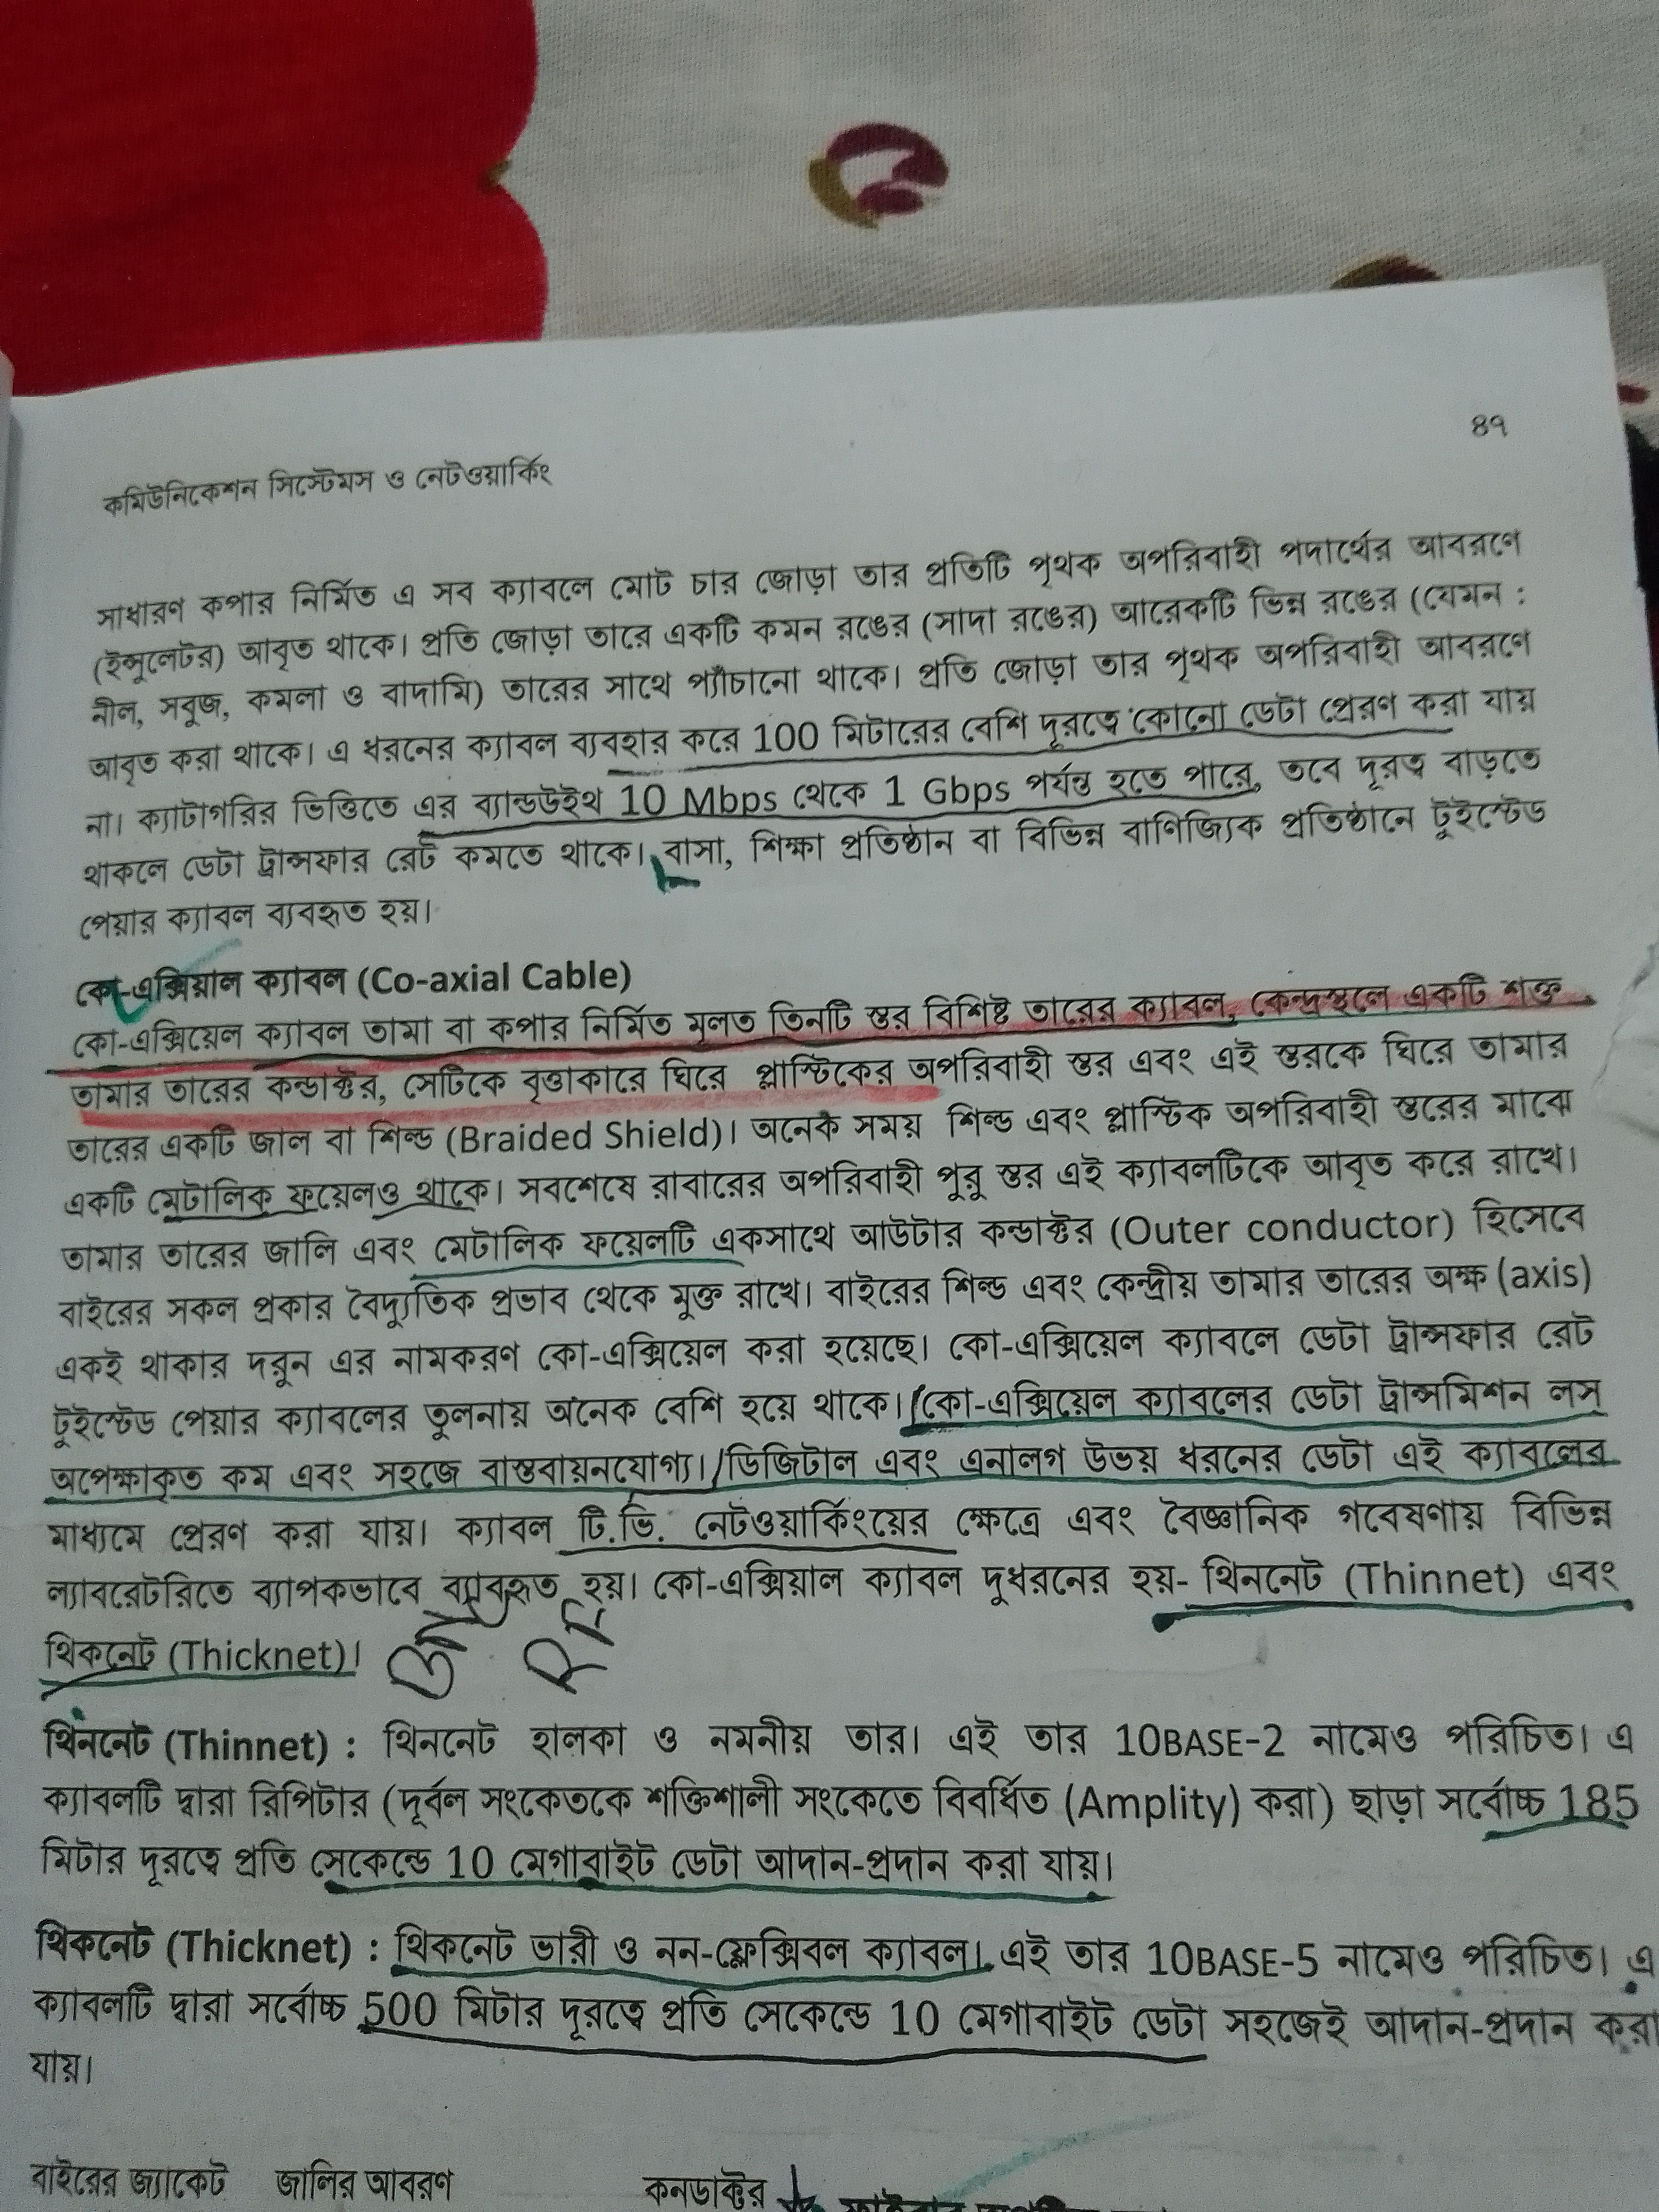 ৪৭
কমিউনিকেশন সিস্টেমস ও নেটওয়ার্কিং
সাধারণ কপার নির্মিত এ সব ক্যাবলে মোট চার জোড়া তার প্রতিটি পৃথক অপরিবাহী পদার্থের আবরণে
(ইন্সুলেটর) আবৃত থাকে। প্রতি জোড়া তারে একটি কমন রঙের (সাদা রঙের) আরেকটি ভিন্ন রঙের (যেমন :
নীল, সবুজ, কমলা ও বাদামি) তারের সাথে প্যাঁচানো থাকে। প্রতি জোড়া তার পৃথক অপরিবাহী আবরণে
আবৃত করা থাকে। এ ধরনের ক্যাবল ব্যবহার করে 100 মিটারের বেশি দূরত্বে কোনো ডেটা প্রেরণ করা যায়
না। ক্যাটাগরির ভিত্তিতে এর ব্যান্ডউইথ 10 Mbps থেকে 1 Gbps পর্যন্ত হতে পারে, তবে দূরত্ব বাড়তে
থাকলে ডেটা ট্রান্সফার রেট কমতে থাকে। বাসা, শিক্ষা প্রতিষ্ঠান বা বিভিন্ন বাণিজ্যিক প্রতিষ্ঠানে টুইস্টেড
পেয়ার ক্যাবল ব্যবহৃত হয়।
কো-এক্সিয়াল ক্যাবল (Co-axial Cable)
কো-এক্সিয়েল ক্যাবল তামা বা কপার নির্মিত মূলত তিনটি স্তর বিশিষ্ট তারের ক্যাবল, কেন্দ্রস্থলে একটি শক্ত
তামার তারের কন্ডাক্টর, সেটিকে বৃত্তাকারে ঘিরে প্লাস্টিকের অপরিবাহী স্তর এবং এই স্তরকে ঘিরে তামার
তারের একটি জাল বা শিল্ড (Braided Shield)। অনেক সময় শিল্ড এবং প্লাস্টিক অপরিবাহী স্তরের মাঝে
একটি মেটালিক ফয়েলও থাকে। সবশেষে রাবারের অপরিবাহী পুরু স্তর এই ক্যাবলটিকে আবৃত করে রাখে।
তামার তারের জালি এবং মেটালিক ফয়েলটি একসাথে আউটার কন্ডাক্টর (Outer conductor) হিসেবে
বাইরের সকল প্রকার বৈদ্যুতিক প্রভাব থেকে মুক্ত রাখে। বাইরের শিল্ড এবং কেন্দ্রীয় তামার তারের অক্ষ (axis)
একই থাকার দরুন এর নামকরণ কো-এক্সিয়েল করা হয়েছে। কো-এক্সিয়েল ক্যাবলে ডেটা ট্রান্সফার রেট
টুইস্টেড পেয়ার ক্যাবলের তুলনায় অনেক বেশি হয়ে থাকে। কো-এক্সিয়েল ক্যাবলের ডেটা ট্রান্সমিশন লস্
অপেক্ষাকৃত কম এবং সহজে বাস্তবায়নযোগ্য। ডিজিটাল এবং এনালগ উভয় ধরনের ডেটা এই ক্যাবলের
মাধ্যমে প্রেরণ করা যায়। ক্যাবল টি.ভি. নেটওয়ার্কিংয়ের ক্ষেত্রে এবং বৈজ্ঞানিক গবেষণায় বিভিন্ন
ল্যাবরেটরিতে ব্যাপকভাবে ব্যাবহৃত হয়। কো-এক্সিয়াল ক্যাবল দুধরনের হয়- থিননেট (Thinnet) এবং
থিকনেট (Thicknet)।
থিননেট (Thinnet) : থিননেট হালকা ও নমনীয় তার। এই তার 10BASE-2 নামেও পরিচিত। এ
ক্যাবলটি দ্বারা রিপিটার (দূর্বল সংকেতকে শক্তিশালী সংকেতে বিবর্ধিত (Amplity) করা) ছাড়া সর্বোচ্চ 185
মিটার দূরত্বে প্রতি সেকেন্ডে 10 মেগাবাইট ডেটা আদান-প্রদান করা যায়।
থিকনেট (Thicknet) : থিকনেট ভারী ও নন-ফ্লেক্সিবল ক্যাবল। এই তার 10BASE-5 নামেও পরিচিত। এ
ক্যাবলটি দ্বারা সর্বোচ্চ 500 মিটার দূরত্বে প্রতি সেকেন্ডে 10 মেগাবাইট ডেটা সহজেই আদান-প্রদান করা
যায়।
বাইরের জ্যাকেট জালির আবরণ কনডাক্টর